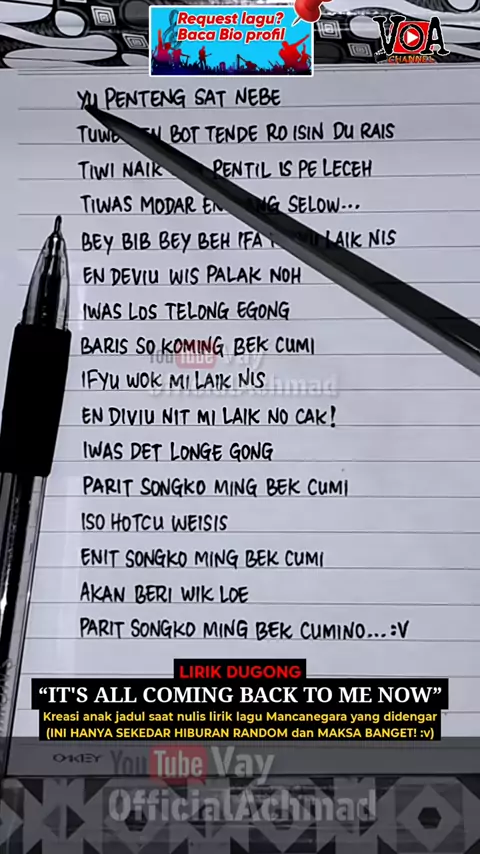 Request lagu?
Baca Bio profil
VOA
CHANNEL
YU PENTENG SAT NEBE
BOT TENDE RO ISIN DU RAIS
TIWI NAIK PENTIL IS PE LECEH
TIWAS MODAR SELOW...
BEY BIB BEY BEH IFA LAIK NIS
EN DEVIU WIS PALAK NOH
IWAS LOS TELONG EGONG
BARIS SO KOMING BEK CUMI
YouTube Vay
OfficialAchmad
IFYU WOK MI LAIK NIS
EN DIVIU NIT MI LAIK NO CAK!
IWAS DET LONGE GONG
PARIT SONGKO MING BEK CUMI
ISO HOTCU WEISIS
ENIT SONGKO MING BEK CUMI
AKAN BERI WIK LOE
PARIT SONGKO MING BEK CUMINO...:V
LIRIK DUGONG
“IT'S ALL COMING BACK TO ME NOW”
Kreasi anak jadul saat nulis lirik lagu Mancanegara yang didengar
(INI HANYA SEKEDAR HIBURAN RANDOM dan MAKSA BANGET! :v)
YouTube Vay
OfficialAchmad